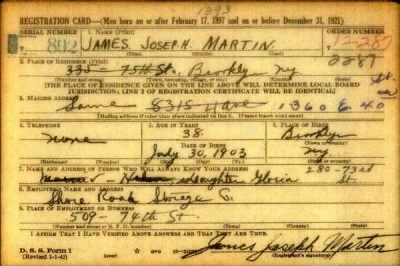 1393
REGISTRATION CARD—(Men born on or after February 17, 1897 and on or before December 31, 1921)
SERIAL NUMBER 1. NAME (Print) ORDER NUMBER
802 JAMES JOSEPH MARTIN 12287
(First) (Middle) (Last)
2. PLACE OF RESIDENCE (Print) 2287
335 - 75th St. Brooklyn NY
(Number and street) (Town, township, village, or city) (County) (State)
[THE PLACE OF RESIDENCE GIVEN ON THE LINE ABOVE WILL DETERMINE LOCAL BOARD
JURISDICTION; LINE 2 OF REGISTRATION CERTIFICATE WILL BE IDENTICAL]
3. MAILING ADDRESS
Same 8315 1360 E 40 St.
[Mailing address if other than place indicated on line 2. If same insert word same]
4. TELEPHONE 5. AGE IN YEARS 6. PLACE OF BIRTH
none 38 Brooklyn
DATE OF BIRTH (Town or county)
July 30, 1903 NY
(Exchange) (Number) (Mo.) (Day) (Yr.) (State or country)
7. NAME AND ADDRESS OF PERSON WHO WILL ALWAYS KNOW YOUR ADDRESS 280-73rd St.
daughter Gloria
8. EMPLOYER'S NAME AND ADDRESS
Shore Road Storage Co.
9. PLACE OF EMPLOYMENT OR BUSINESS
509 - 74th St.
(Number and street or R. F. D. number) (Town) (County) (State)
I AFFIRM THAT I HAVE VERIFIED ABOVE ANSWERS AND THAT THEY ARE TRUE.
D. S. S. Form 1
(Revised 1-1-42) James Joseph Martin
(Registrant's signature)